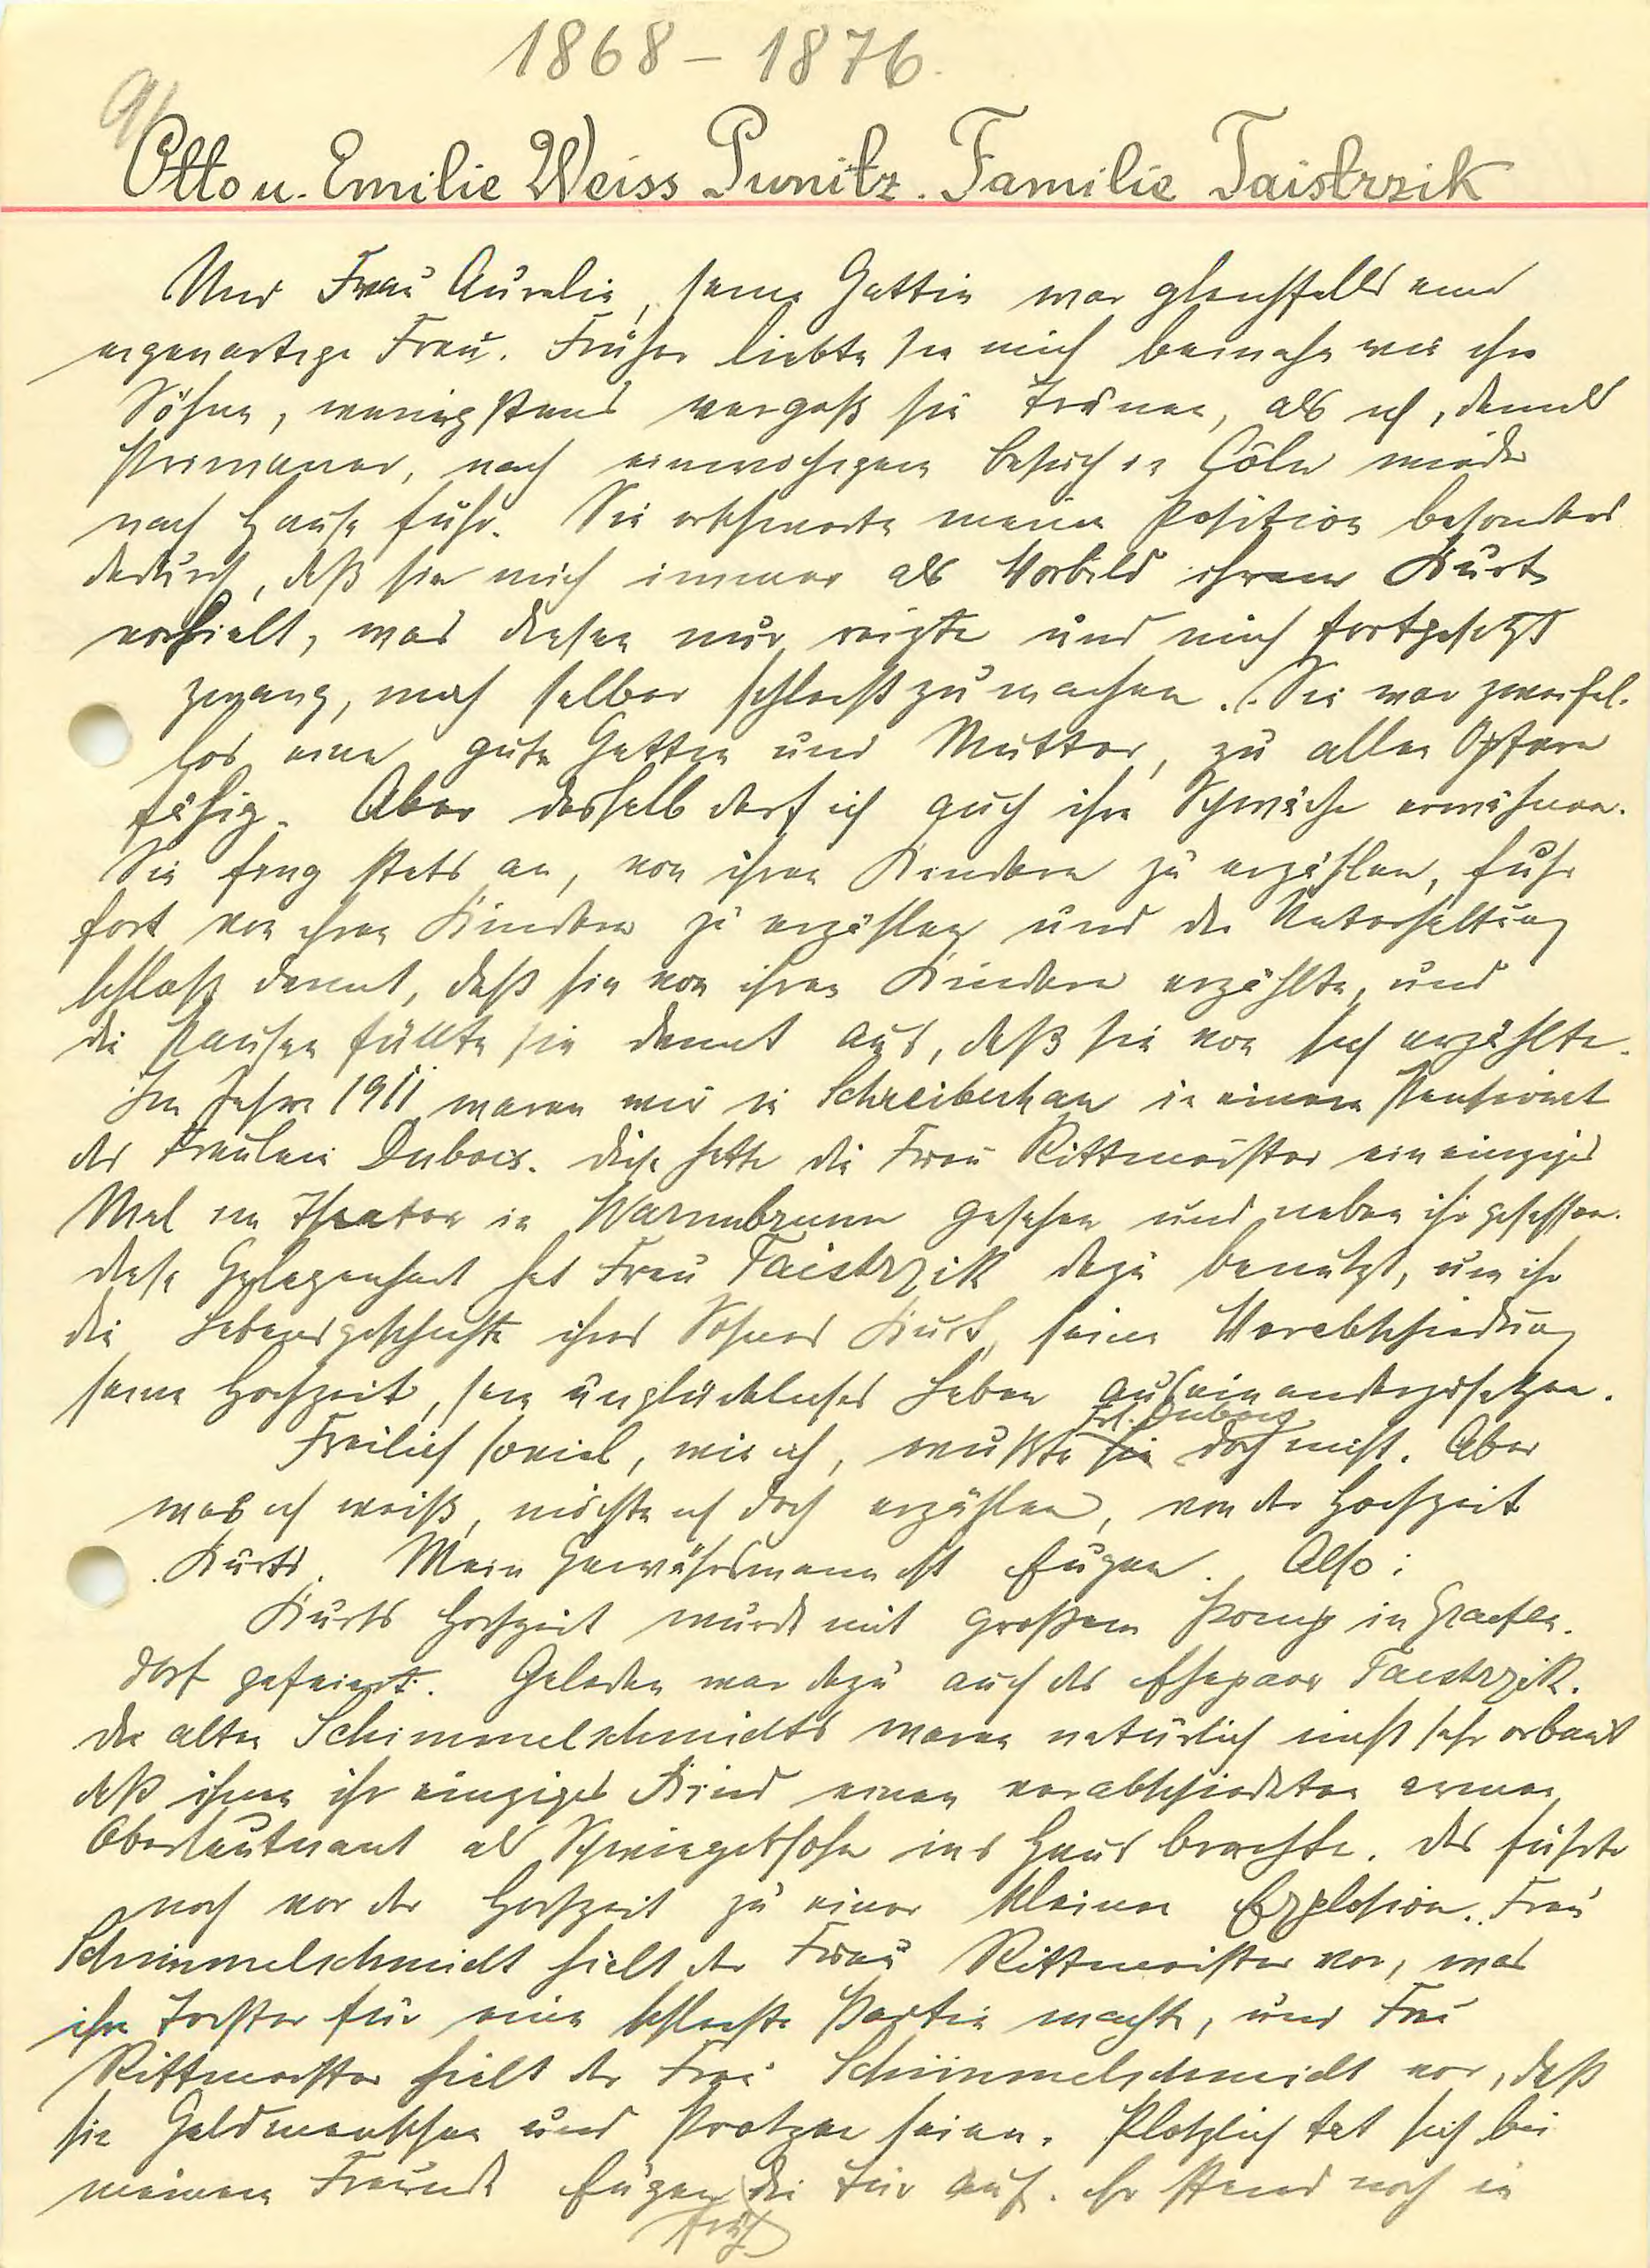 1868 – 1876.
9/
Otto u. Emilie Weiss Punitz. Familie Taistrzik
Und Frau Aurelie, seine Gattin war gleichfalls eine
eigenartige Frau. Früher liebte sie mich beinahe wie ihre
Söhne, wenigstens vergoß sie Tränen, als ich, damals
Primaner, nach einwöchigem Besuch in Cöln wieder
nach Hause fuhr. Sie erschwerte meine Position besonders
dadurch, daß sie mich immer als Vorbild ihrem Kurt
vorhielt, was diesen nur reizte und mich fortgesetzt
zwang, mich selber schlecht zu machen. Sie war zweifel-
los eine gute Gattin und Mutter, zu allen Opfern
fähig. Aber deshalb darf ich auch ihre Schwäche erwähnen.
Sie fing stets an, von ihren Kindern zu erzählen, fuhr
fort von ihren Kindern zu erzählen und die Unterhaltung
schloß damit, daß sie von ihren Kindern erzählte, und
die Pausen füllte sie damit aus, daß sie von sich erzählte.
Im Jahre 1911 waren wir in Schreiberhau in einem Pensionat
der Fräulein Dubois. Diese hatte die Frau Rittmeister ein einziges
Mal im Theater in Warmbrunn gesehen und neben ihr gesessen.
Diese Gelegenheit hat Frau Taistrzik dazu benutzt, um ihr
die Lebensgeschichte ihres Sohnes Kurt, seine Verabschiedung
seine Hochzeit, sein unglückliches Leben auseinanderzusetzen.
Frl. Dubois
Freilich soviel, wie ich, wußte sie doch nicht. Aber
was ich weiß, möchte ich doch erzählen, von der Hochzeit
Kurts. Mein Gewährsmann ist Eugen. Also:
Kurts Hochzeit wurde mit großem Pomp in Graefen-
dorf gefeiert. Geladen war dazu auch das Ehepaar Taistrzik.
Die alten Schimmelschmidts waren natürlich nicht sehr erbaut
daß ihnen ihr einziges Kind einen verabschiedeten armen
Oberleutnant als Schwiegersohn ins Haus brachte. Das führte
noch vor der Hochzeit zu einer kleinen Explosion. Frau
Schimmelschmidt hielt der Frau Rittmeister vor, was
ihre Tochter für eine schlechte Partie machte, und Frau
Rittmeister hielt der Frau Schimmelschmidt vor, daß
sie Geldmenschen und Protzen seien. Plötzlich tat sich bei
meinem Freunde Eugen die Tür auf. Er stand noch in
früh